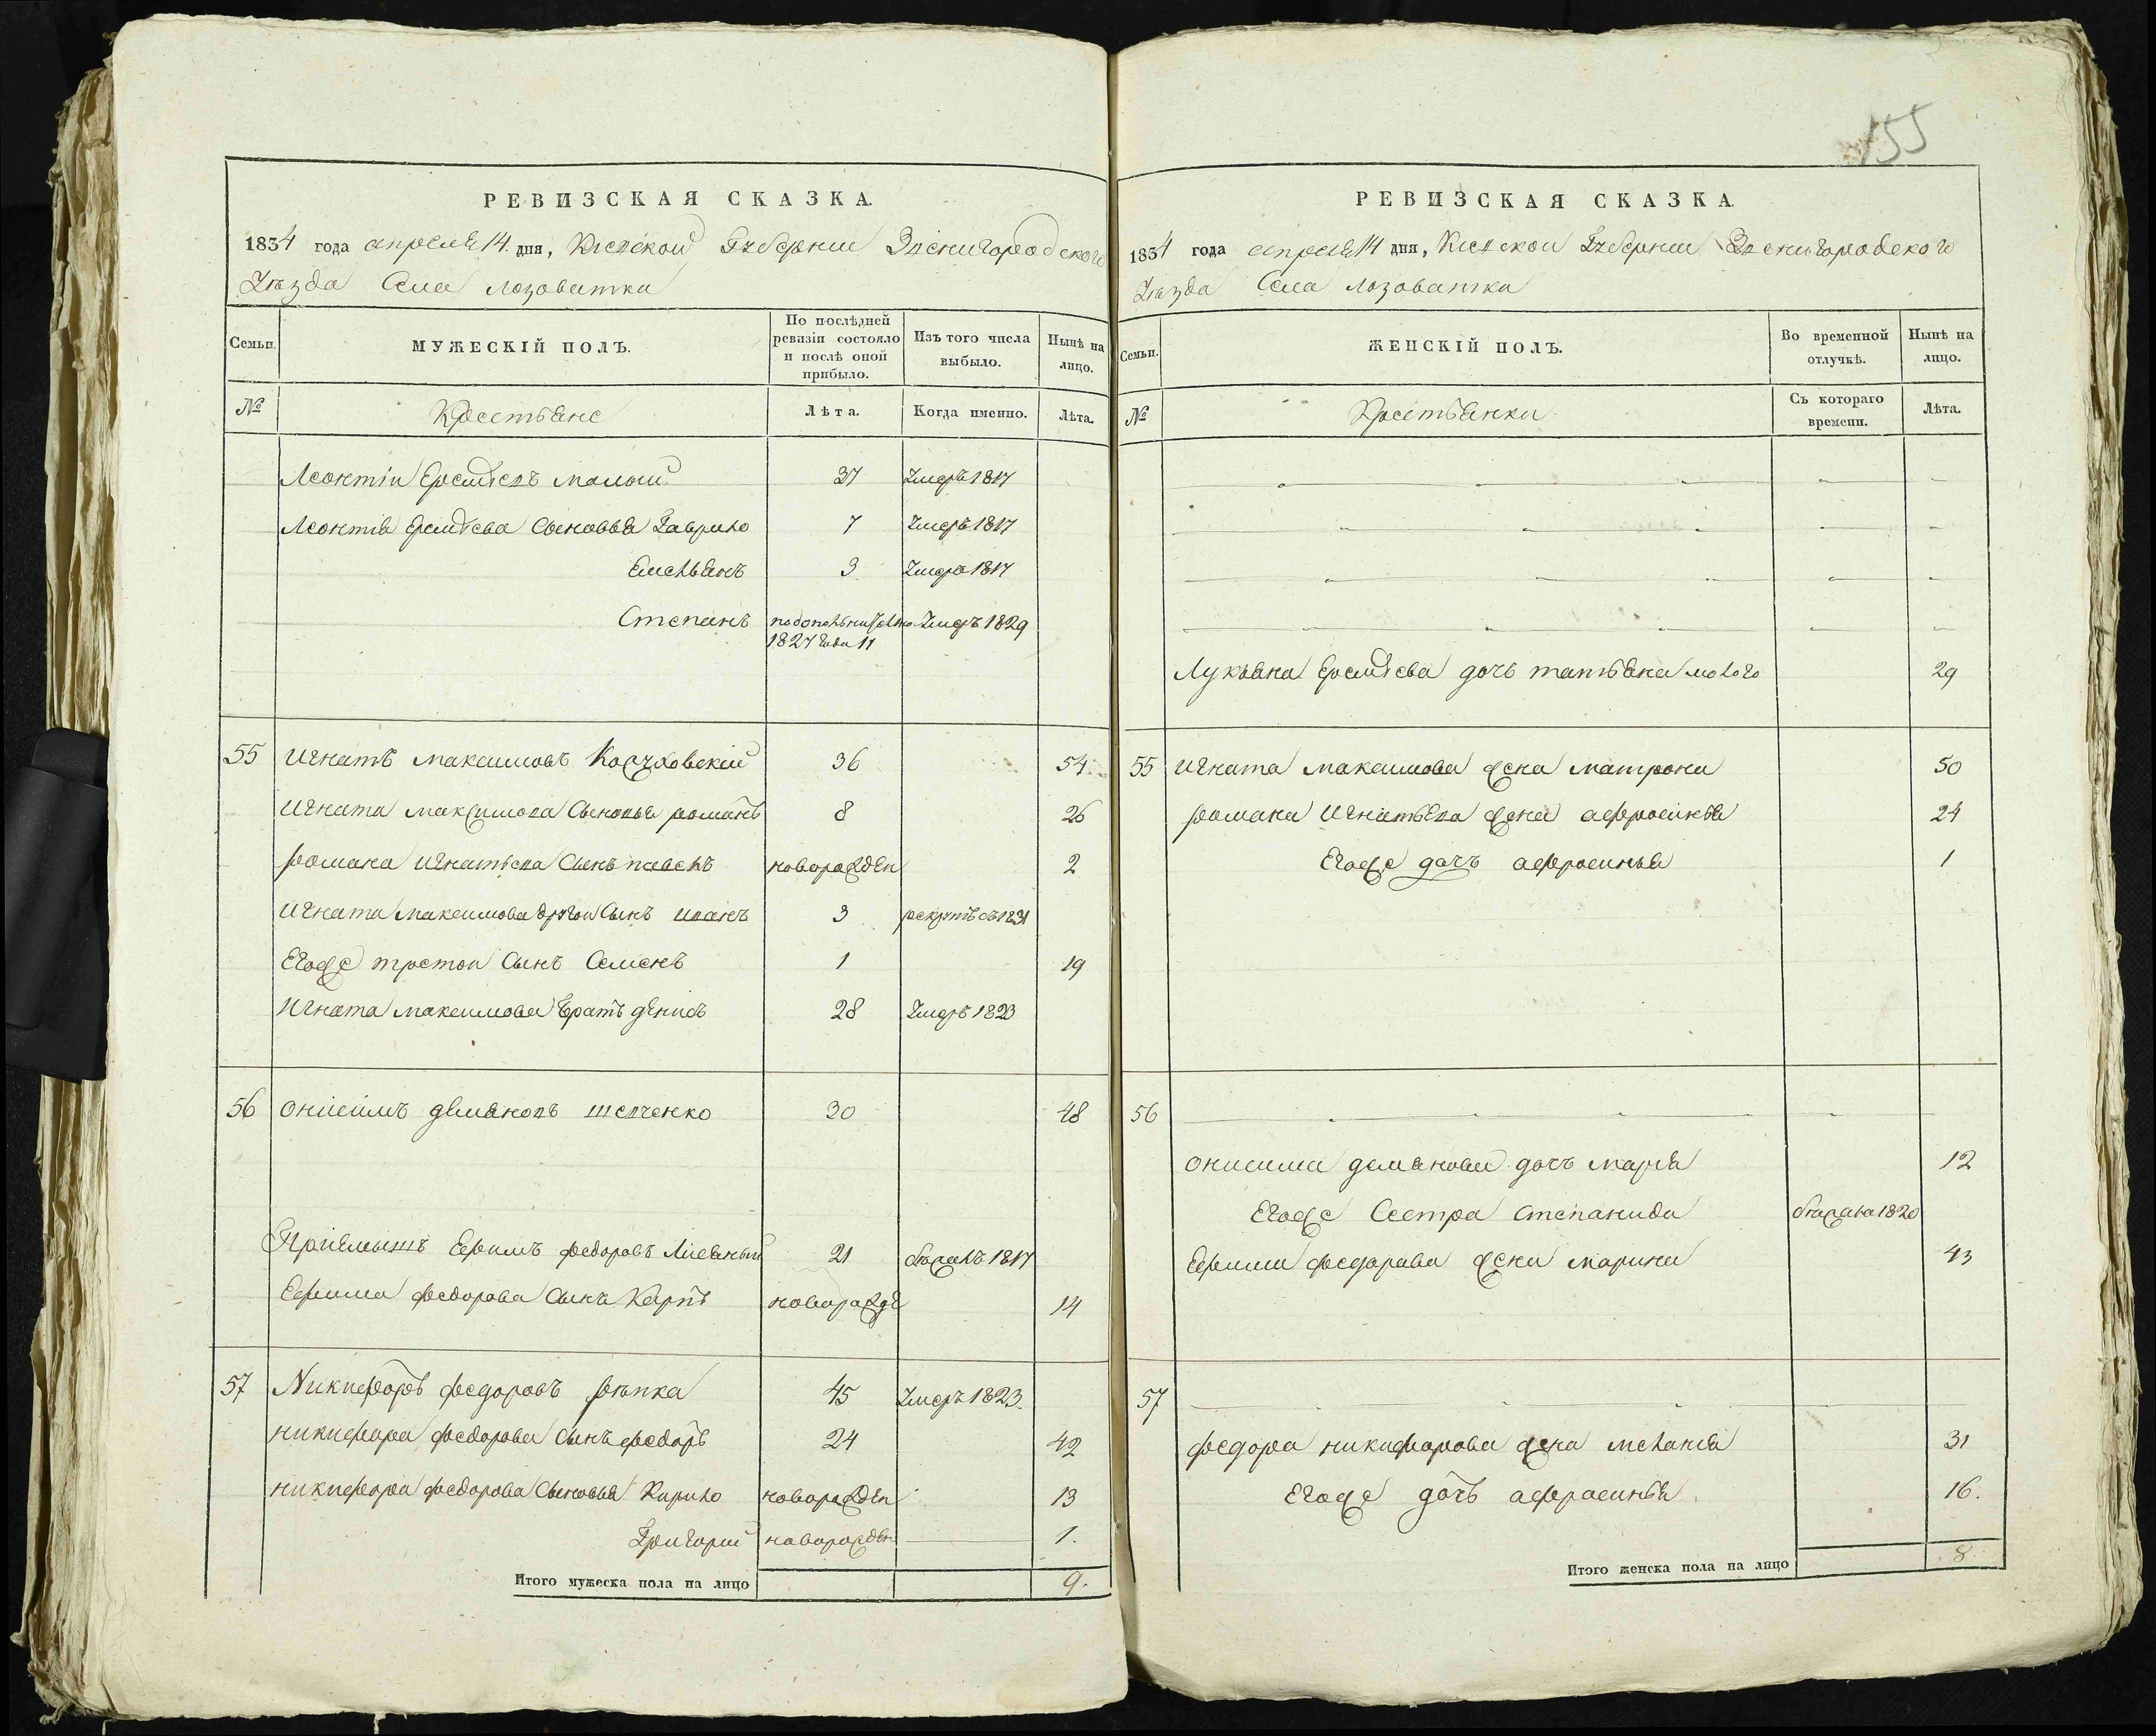 155
РЕВИЗСКАЯ СКАЗКА.
1834 года апреля 14 дня, Киевской Губернии Звенигородского
Уѣзда Села Лозоватки
Семьи. МУЖЕСКІЙ ПОЛЪ. По послѣдней ревизіи состояло и послѣ оной прибыло. Изъ того числа выбыло. Нынѣ на лицо.
№ Крестьяне Лѣта. Когда именно. Лѣта.
Леонтіи Еремѣевъ малыи 37 Умеръ 1817
Леонтія Еремѣева Сыновья Гаврило 7 Умеръ 1817
Емельянъ 3 Умеръ 1817
Степанъ Умеръ 1829
1827 Года 11
55 Игнатъ Максимовъ 36 54
Игната Максимова Сыновья романъ 8 26
романа Игнатьева Сынъ павелъ новорожден 2
Игната Максимова другои Сынъ иванъ 3 рекрутъ съ 1831
Егоже третои Сынъ Семенъ 1 19
Игната Максимова братъ денисъ 28 Умеръ 1823
56 Онисимъ демяновъ шевченко 30 48
Пріемышъ Ефимъ федоровъ 21 бѣжалъ 1817
Ефима федорова Сынъ Карпъ новорожде 14
57 Никифоръ федоровъ рѣпка 45 Умеръ 1823.
никифора федорова Сынъ федоръ 24 42
никифора федорова Сыновья Кирило новорожден 13
Григорий новорожден 1.
Итого мужеска пола на лицо 9.
РЕВИЗСКАЯ СКАЗКА
1834 года апреля 14 дня, Киевскои Губернии Звенигородского
Уѣзда Села Лозоватки
Семьи. ЖЕНСКІЙ ПОЛЪ. Во временной отлучкѣ. Нынѣ на лицо.
№ Крестьянки Съ котораго времени. Лѣта.
Лукьяна Еремѣева дочь татьяна 29
55 Игната Максимова жена матрона 50
романа Игнатьева жена афросинья 24
Егоже дочь афросинья 1
56
Онисима демянова дочь марія 12
Егоже Сестра степанида бѣжала 1820
Ефима федорова жена марина 43
57
федора никифорова жена меланія 31
Егоже дочъ афросинья 16.
Итого женска пола на лицо 8